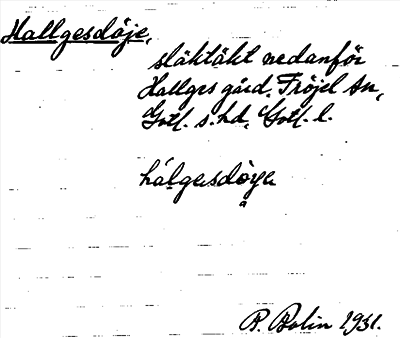 Hallgesdöje,
släktäkt nedanför
Hallges gård, Fröjel sn,
Gotl. s. hd, Gotl. l.
hálgesdòye
B. Bolin 1931.